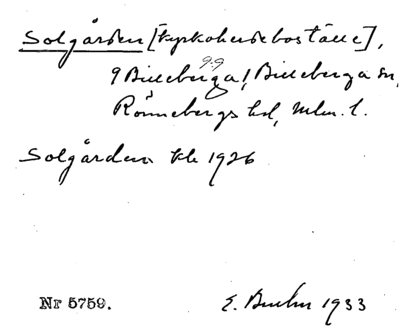 Solgården [kyrkoherdeboställe],
9 Billeberga, Billeberga sn,
Rönnebergs hd, Mlm. l.
Solgården kk 1926
Nr 5759.
E. 1933